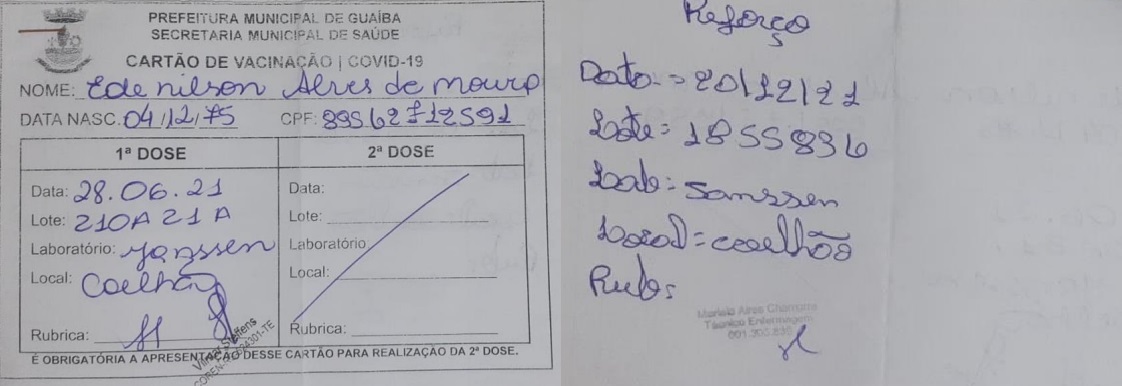 PREFEITURA MUNICIPAL DE GUAÍBA
SECRETARIA MUNICIPAL DE SAÚDE
CARTÃO DE VACINAÇÃO | COVID-19
NOME: Edenilson Alves de Moura
DATA NASC. 04/12/75 CPF: 89562712591
1ª DOSE
Data: 28.06.21
Lote: 210A21A
Laboratório: Janssen
Local: Coelhão
Rubrica:
2ª DOSE
Data:
Lote:
Laboratório
Local:
Rubrica:
É OBRIGATÓRIA A APRESENTAÇÃO DESSE CARTÃO PARA REALIZAÇÃO DA 2ª DOSE.
Reforço
Data = 20/12/21
Lote = 1855836
Lab = Janssen
Local = coelhão
Rub:
Técnico Enfermagem